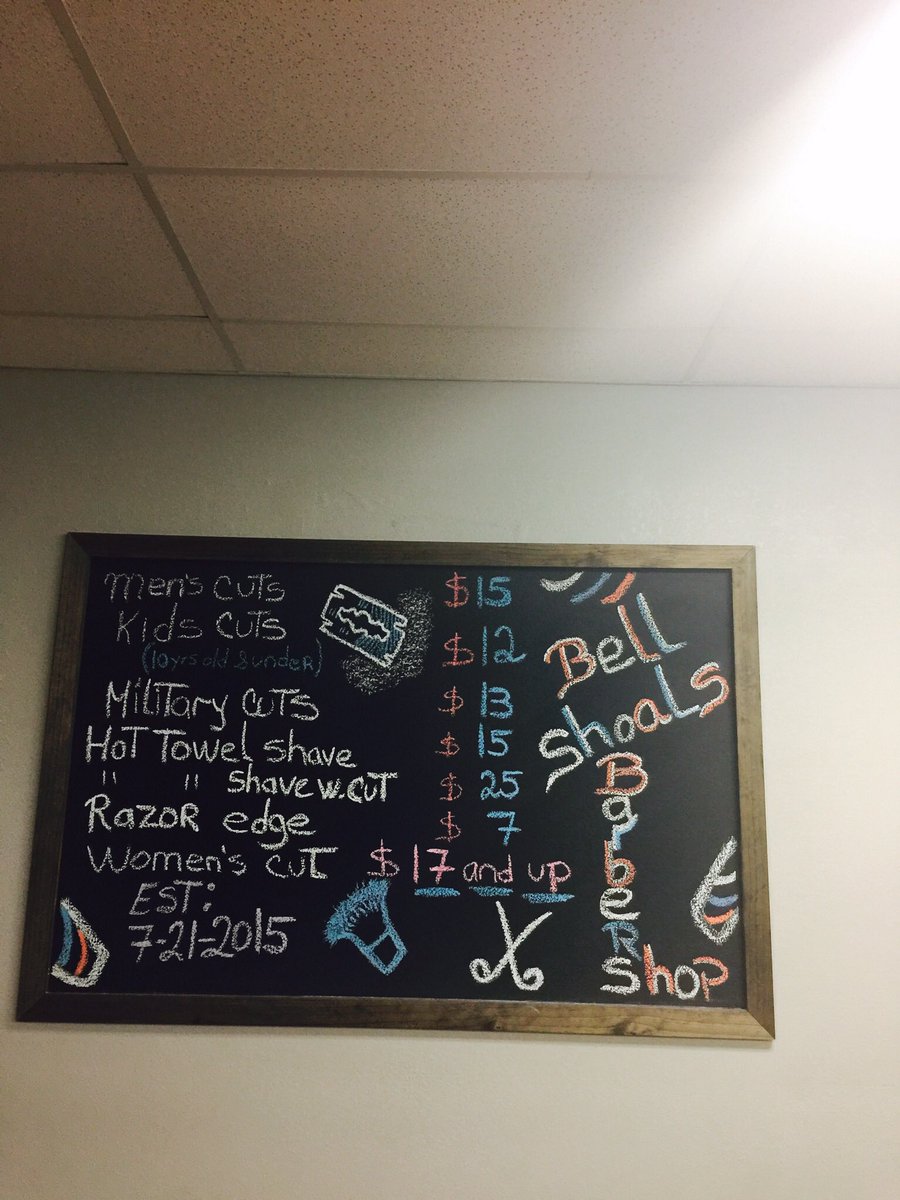 Men's cuts $15
Kids cuts $12
(10yrs old & under)
Military cuts $13
Hot Towel shave $15
" " shave w. cut $25
Razor edge $7
Women's cut $17 and up
EST:
7-21-2015
Bell
Shoals
Barber
Shop